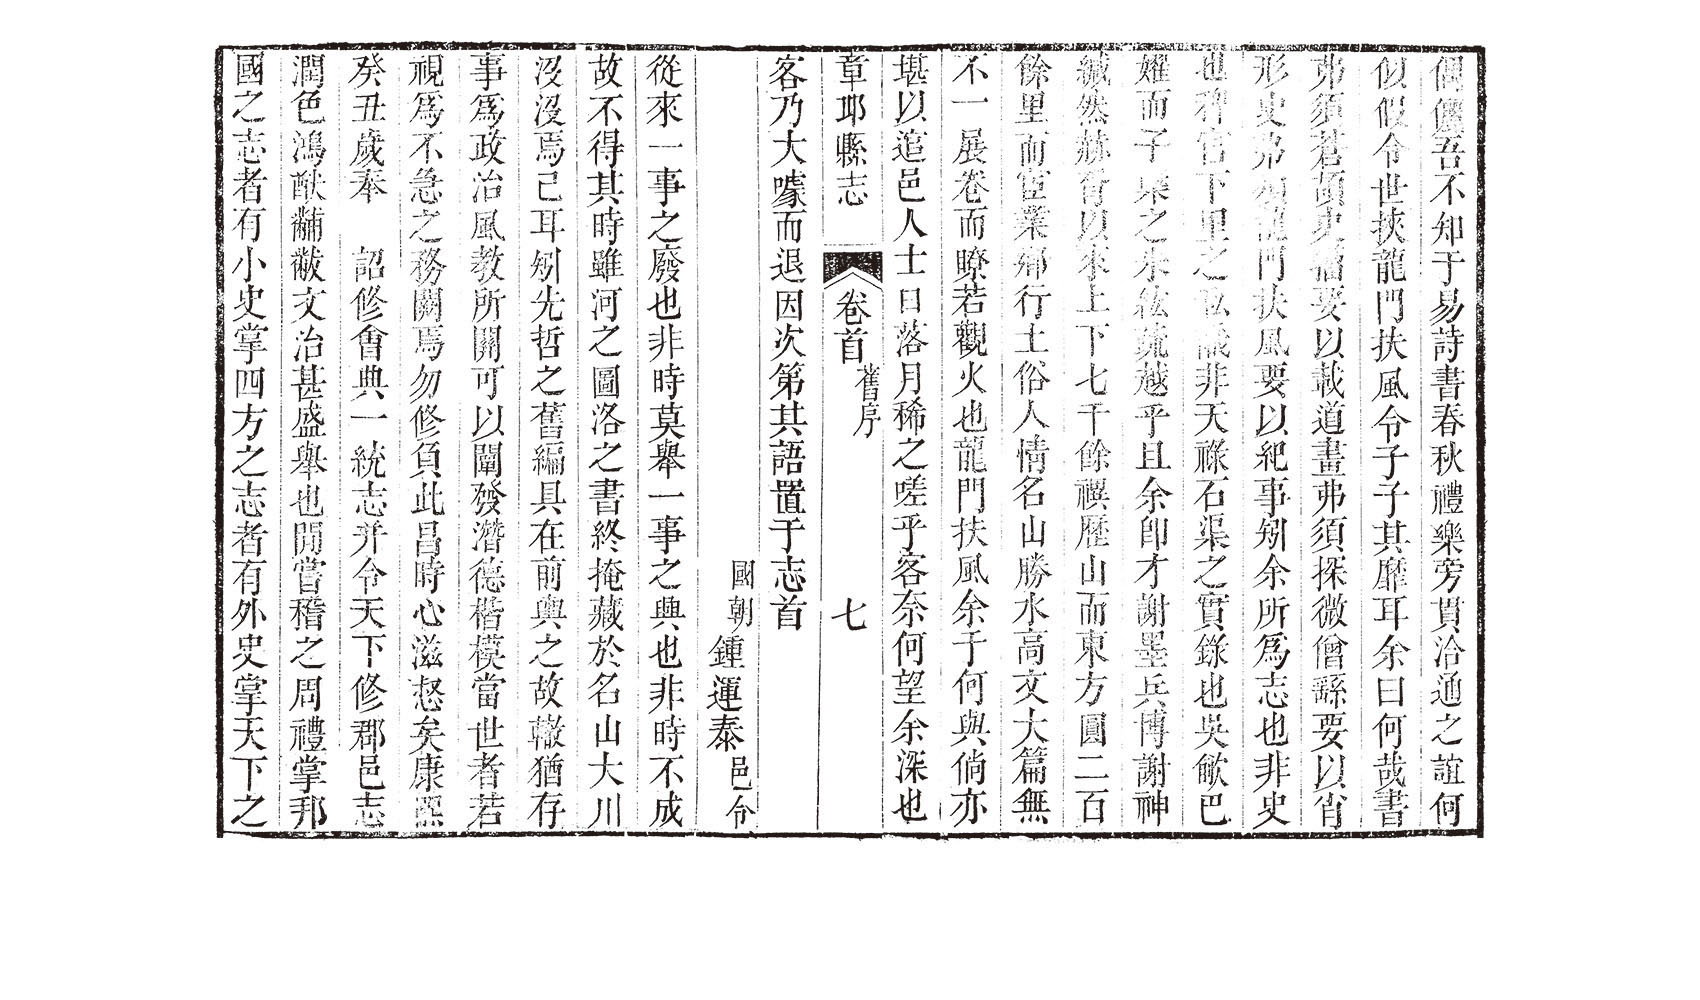 吾不知于易詩書春秋禮樂旁貫洽通之誼何
似假令世挾龍門扶風令子子其靡耳余曰何哉書
弗須蒼頡史籀要以載道畫弗須探微僧繇要以肖
形史弗須龍門扶風要以紀事矧余所為志也非史
也稗官下里之私識非天祿石渠之實錄也吳歈巴
嬥而子渠之朱絃疏越乎且余卽才謝墨兵博謝神
緘然赫胥以來上下七千餘禩歷山而東方圓二百
餘里而宦業鄉行土俗人情名山勝水高文大篇無
不一展卷而瞭若觀火也龍門扶風余于何與倘亦
堪以追邑人士日落月稀之嗟乎客奈何望余深也
章邱縣志 卷首 舊序 七
客乃大噱而退因次第其語置于志首
國朝鍾運泰邑令
從來一事之廢也非時莫舉一事之興也非時不成
故不得其時雖河之圖洛之書終掩藏於名山大川
沒沒焉已耳矧先哲之舊編具在前輿之故轍猶存
事爲政治風教所關可以闡發潛德楷模當世者若
視爲不急之務闕焉勿修負此昌時心滋惄矣康熙
癸丑歲奉 詔修會典一統志并令天下修郡邑志
潤色鴻猷黼黻文治甚盛舉也閒嘗稽之周禮掌邦
國之志者有小史掌四方之志者有外史掌天下之